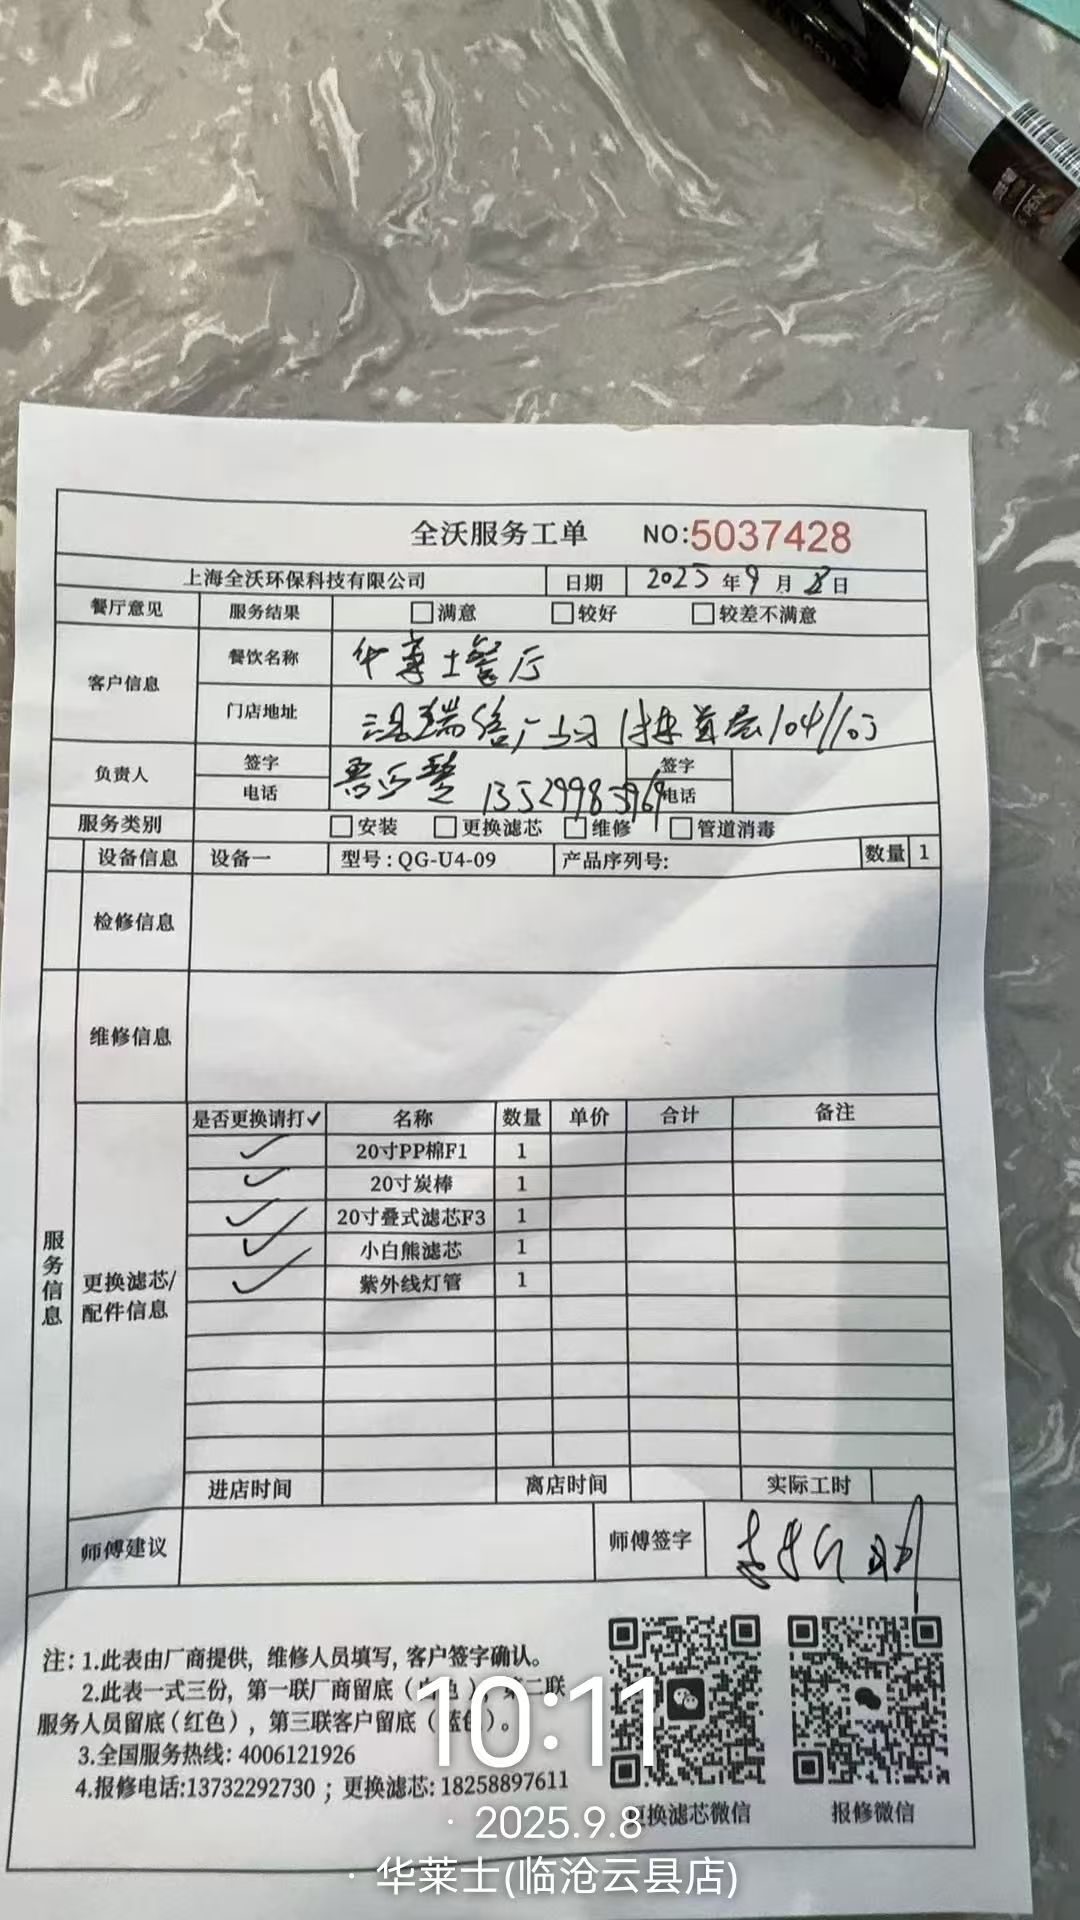 全沃服务工单 NO:5037428
上海全沃环保科技有限公司 日期 2025年9月8日
餐厅意见 服务结果 □满意 □较好 □较差不满意
客户信息 餐饮名称 华莱士餐厅
门店地址 瑞 广 首层104/103
负责人 签字 签字
电话 电话
服务类别 □安装 □更换滤芯 □维修 □管道消毒
设备信息 设备一 型号:QG-U4-09 产品序列号: 数量 1
检修信息
维修信息
服务信息
更换滤芯/配件信息
是否更换请打✓ 名称 数量 单价 合计 备注
✓ 20寸PP棉F1 1
✓ 20寸炭棒 1
✓ 20寸叠式滤芯F3 1
✓ 小白熊滤芯 1
✓ 紫外线灯管 1
进店时间 离店时间 实际工时
师傅建议 师傅签字
注: 1.此表由厂商提供, 维修人员填写, 客户签字确认。
2.此表一式三份, 第一联厂商留底( 色 ), 第二联
服务人员留底(红色), 第三联客户留底(蓝色)。
3.全国服务热线: 4006121926
4.报修电话:13732292730 ; 更换滤芯: 18258897611
更换滤芯微信 报修微信
10:11
· 2025.9.8
· 华莱士(临沧云县店)